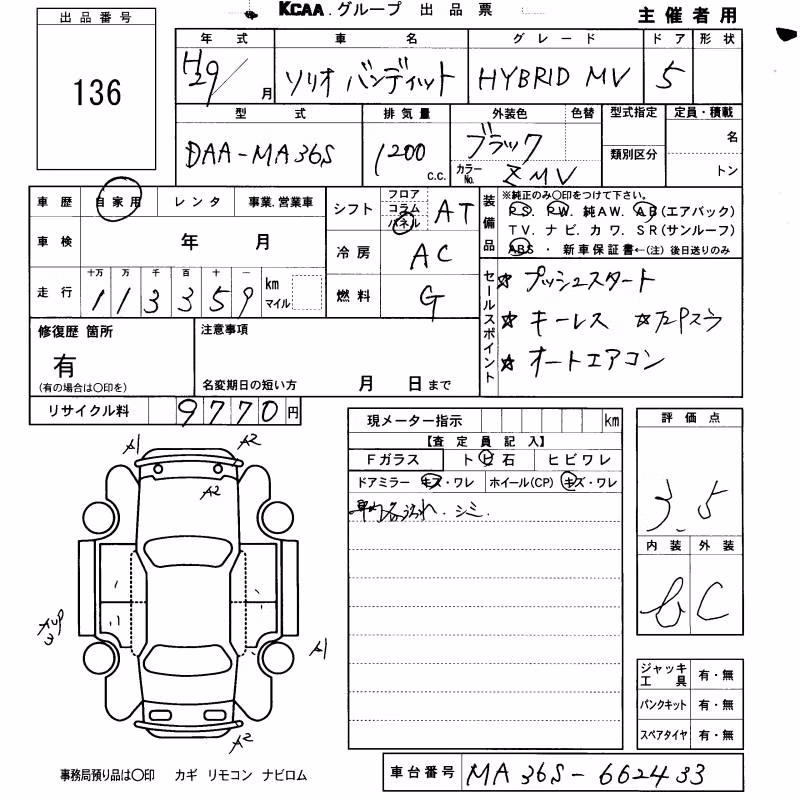 KCAA.グループ 出品票
主催者用
出品番号
136
年式 車名 グレード ドア 形状
H29/ 月 ソリオ バンディット HYBRID MV 5
型式 排気量 外装色 色替 型式指定 定員・積載
DAA-MA36S 1200 c.c. ブラック 名
類別区分
カラーNo. ZMV トン
車歴 自家用 レンタ 事業.営業車
車検 年 月
走行 十万 万 千 百 十 一
113359 km マイル
シフト フロア コラム パネル AT
冷房 AC
燃料 G
装備品
※純正のみ〇印をつけて下さい。
PS. PW. 純AW. AB(エアバック)
TV. ナビ. カワ. SR(サンルーフ)
ABS ・ 新車保証書←(注) 後日送りのみ
セールスポイント
☆ プッシュスタート
☆ キーレス ☆
☆ オートエアコン
修復歴 箇所
有
(有の場合は〇印を)
注意事項
名変期日の短い方 月 日まで
リサイクル料 9770 円
現メーター指示 km
【査定員記入】
Fガラス トビ石 ヒビワレ
ドアミラー キズ・ワレ ホイール(CP) キズ・ワレ
シミ.
評価点
3.5
内装 外装
b C
ジャッキ工具 有・無
パンクキット 有・無
スペアタイヤ 有・無
A1 A2
A2
3
A1
A2
事務局預り品は〇印 カギ リモコン ナビロム
車台番号 MA36S-662433